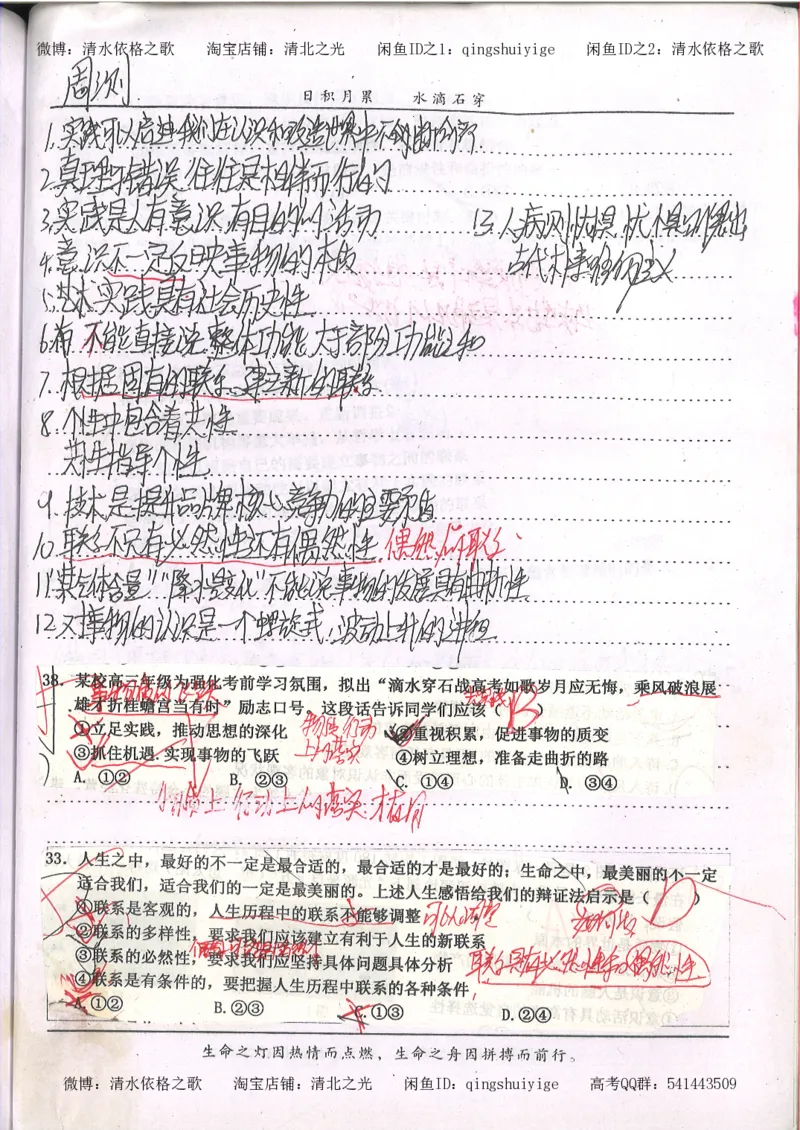 微博：清水依格之歌 淘宝店铺：清北之光 闲鱼ID之1：qingshuiyige 闲鱼ID之2：清水依格之歌
周测
日积月累 水滴石穿
1.实践可以启迪我们在认识和改造世界中不夠曲
2.真理与错误往往是相伴而行的
3.实践是人有意识有目的的活动
13.人病风惧,忧惧
4.意识不一定反映事物的本质
古代朴素唯物主义
5.艺术实践具有社会历史性
6.前 不能直接说整体功能大于部分功能之和
7.根据固有的联系,建立新的联系
8.个性中包含着共性
共性指导个性
9.技术是提升品牌核心竞争力的主要矛盾
10.联系不只有必然性还有偶然性 偶然的联系
11."某气体含量""降水变化"不能说事物的发展具有曲折性
12.对事物的认识是一个螺旋式,波动上升的过程
38．某校高三年级为强化考前学习氛围，拟出“滴水穿石战高考如歌岁月应无悔，乘风破浪展
雄才折桂蟾宫当有时”励志口号。这段话告诉同学们应该（ B ）
①立足实践，推动思想的深化 ②重视积累，促进事物的质变
物质行动
③抓住机遇.实现事物的飞跃 ④树立理想，准备走曲折的路
上的落实
A. ①② B. ②③ C. ①④ D. ③④
行动上的落实,才有用
33．人生之中，最好的不一定是最合适的，最合适的才是最好的；生命之中，最美丽的不一定
适合我们，适合我们的一定是最美丽的。上述人生感悟给我们的辩证法启示是（ D ）
①联系是客观的，人生历程中的联系不能够调整 可以调整
②联系的多样性，要求我们应该建立有利于人生的新联系
③联系的必然性，要求我们应坚持具体问题具体分析 联系具有必然性与偶然性
④联系是有条件的，要把握人生历程中联系的各种条件
A. ①② B. ②③ C. ①③ D. ②④
生命之灯因热情而点燃，生命之舟因拼搏而前行。
微博：清水依格之歌 淘宝店铺：清北之光 闲鱼ID：qingshuiyige 高考QQ群：541443509